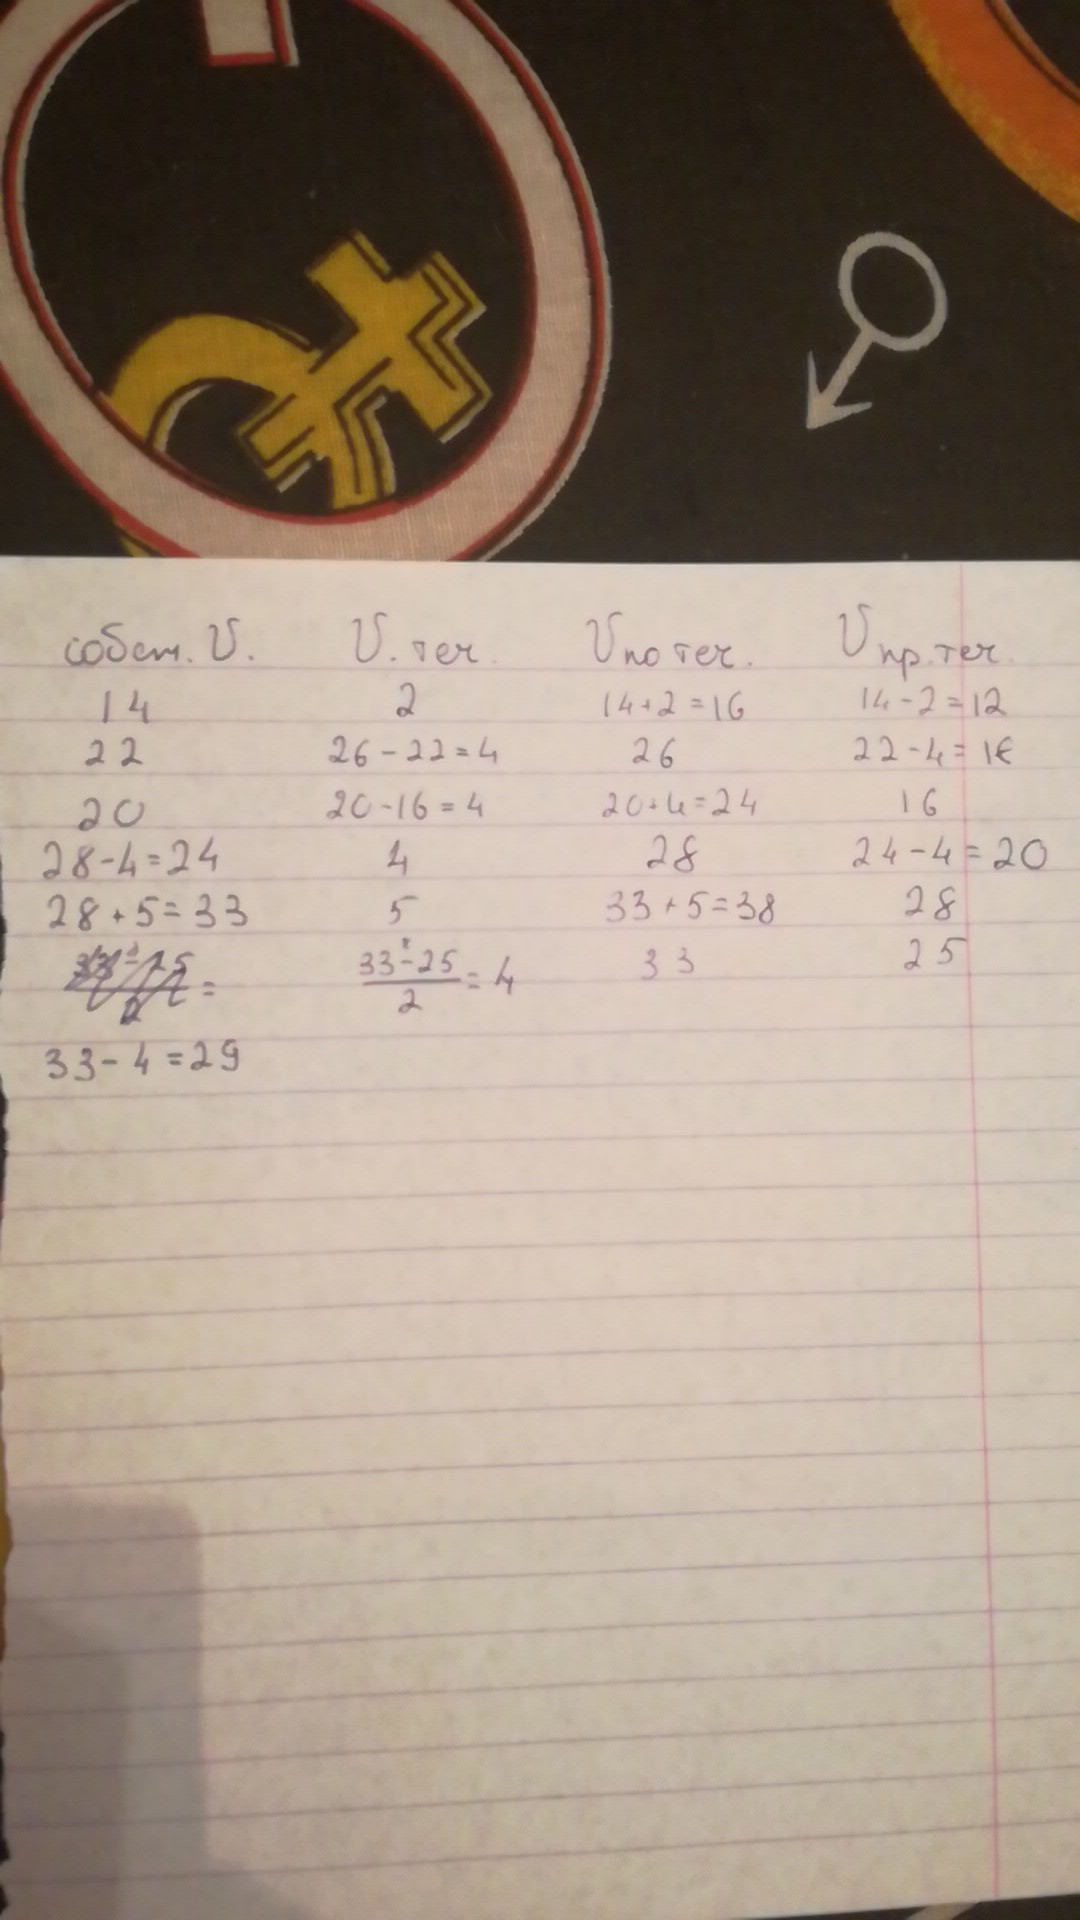 собст. V. V. теч. V по теч. V пр. теч.
14 2 14+2=16 14-2=12
22 26-22=4 26 22-4=18
20 20-16=4 20+4=24 16
28-4=24 4 28 24-4=20
28+5=33 5 33+5=38 28
= 33-25/2=4 33 25
33-4=29